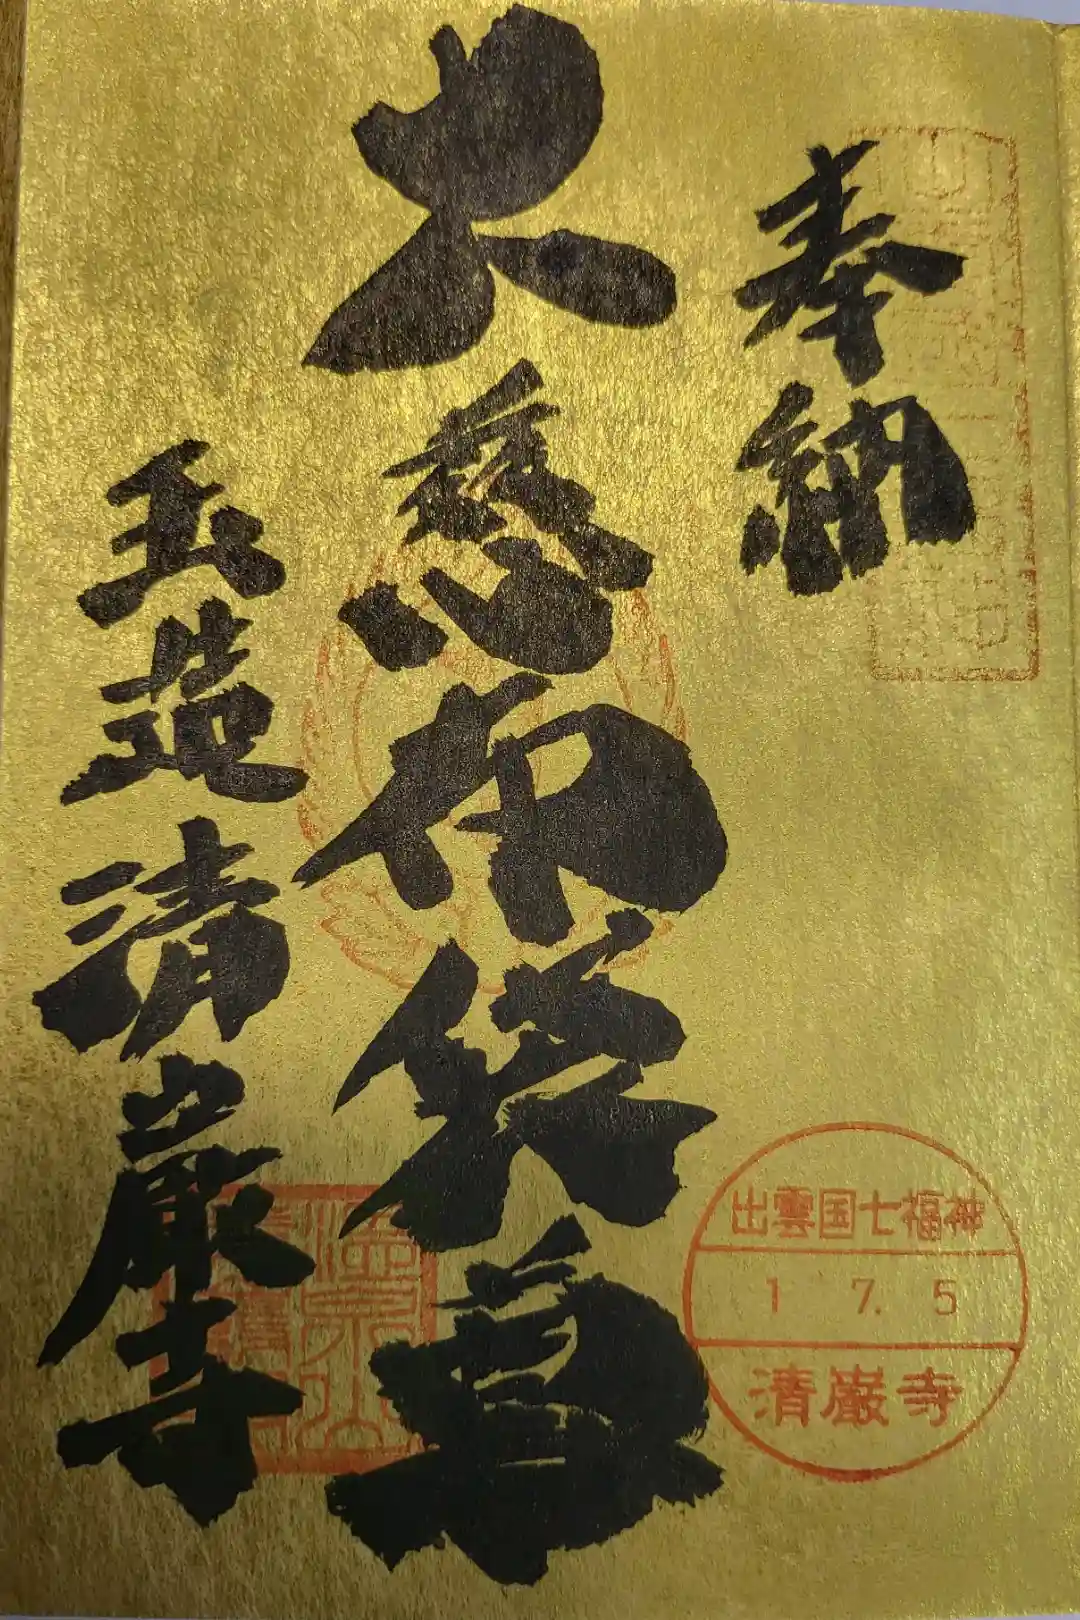 奉納
大慈布袋尊
玉造清巌寺
出雲国七福神
1 7. 5
清巌寺